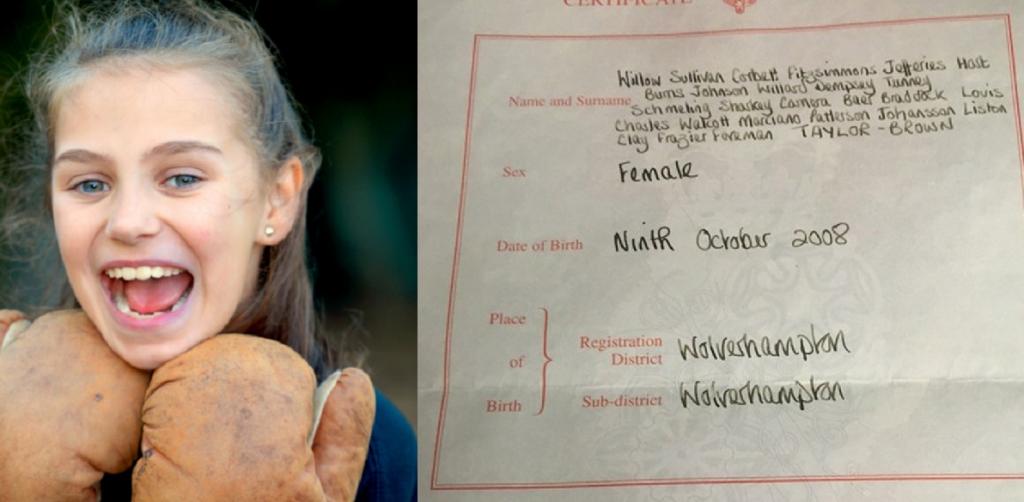 CERTIFICATE
Name and Surname
Willow Sullivan Corbett Fitzsimmons Jefferies Hart
Burns Johnson Willard Dempsey Tunney
Schmeling Sharkey Carnera Baer Braddock Louis
Charles Walcott Marciano Patterson Johansson Liston
Clay Frazier Foreman TAYLOR-BROWN
Sex Female
Date of Birth Ninth October 2008
Place
of
Birth
Registration District Wolverhampton
Sub-district Wolverhampton